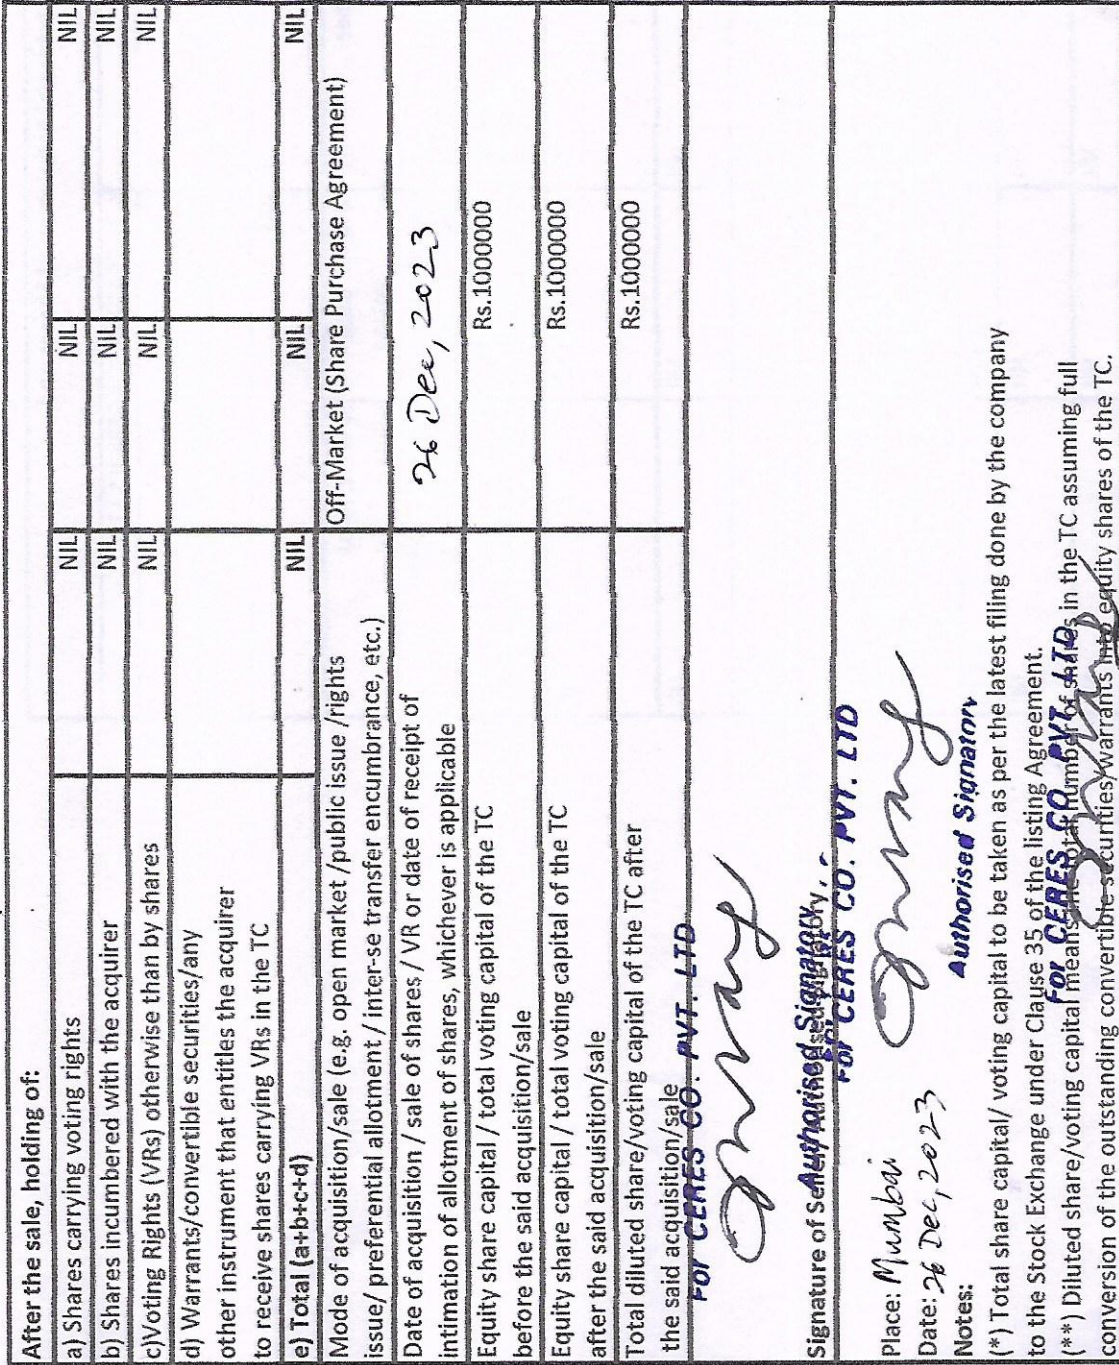 After the sale, holding of:
a) Shares carrying voting rights NIL NIL NIL
b) Shares incumbered with the acquirer NIL NIL NIL
c)Voting Rights (VRs) otherwise than by shares NIL NIL NIL
d) Warrants/convertible securities/any
other instrument that entitles the acquirer
to receive shares carrying VRs in the TC
e) Total (a+b+c+d) NIL NIL NIL
Mode of acquisition/sale (e.g. open market /public issue /rights
issue/ preferential allotment / inter-se transfer encumbrance, etc.)
Off-Market (Share Purchase Agreement)
Date of acquisition / sale of shares / VR or date of receipt of
intimation of allotment of shares, whichever is applicable
26 Dec, 2023
Equity share capital / total voting capital of the TC
before the said acquisition/sale
Rs.1000000
Equity share capital / total voting capital of the TC
after the said acquisition/sale
Rs.1000000
Total diluted share/voting capital of the TC after
the said acquisition/sale
Rs.1000000
For CERES CO. PVT. LTD
Authorised Signatory
Signature of Seller/Authorised Signatory
For CERES CO. PVT. LTD
Place: Mumbai
Date: 26 Dec, 2023
Authorised Signatory
Notes:
(*) Total share capital/ voting capital to be taken as per the latest filing done by the company
to the Stock Exchange under Clause 35 of the listing Agreement.
For CERES CO. PVT. LTD
(**) Diluted share/voting capital means the total number of shares in the TC assuming full
conversion of the outstanding convertible securities/warrants into equity shares of the TC.